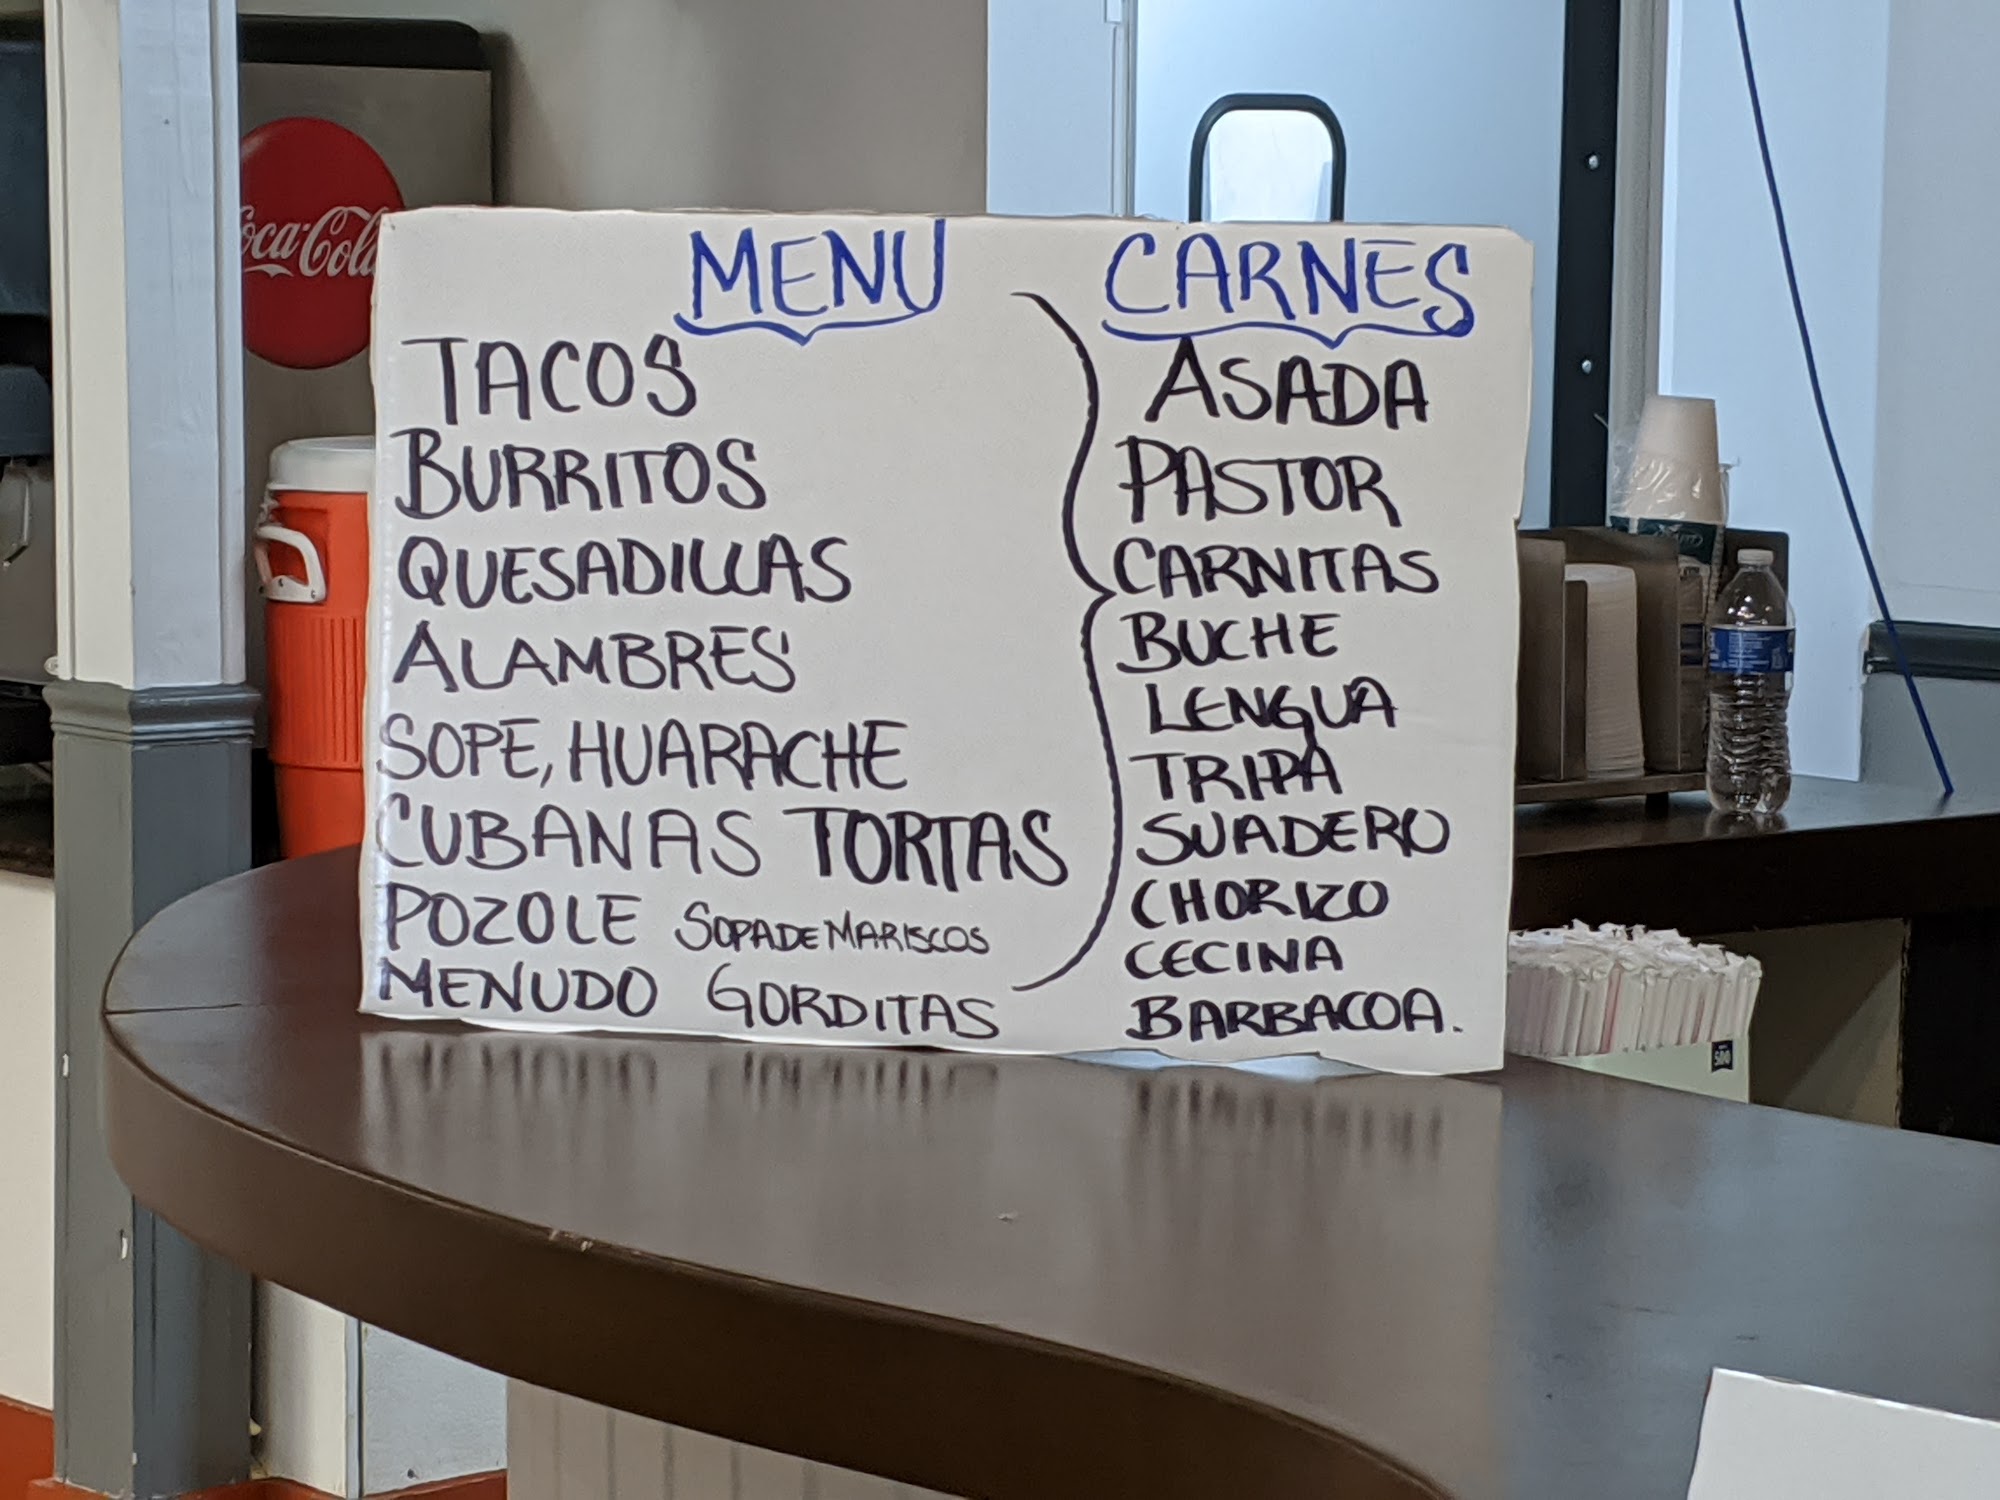 Coca-Cola
MENU
TACOS
BURRITOS
QUESADILLAS
ALAMBRES
SOPE, HUARACHE
CUBANAS TORTAS
POZOLE SOPA DE MARISCOS
MENUDO GORDITAS
CARNES
ASADA
PASTOR
CARNITAS
BUCHE
LENGUA
TRIPA
SUADERO
CHORIZO
CECINA
BARBACOA.
500